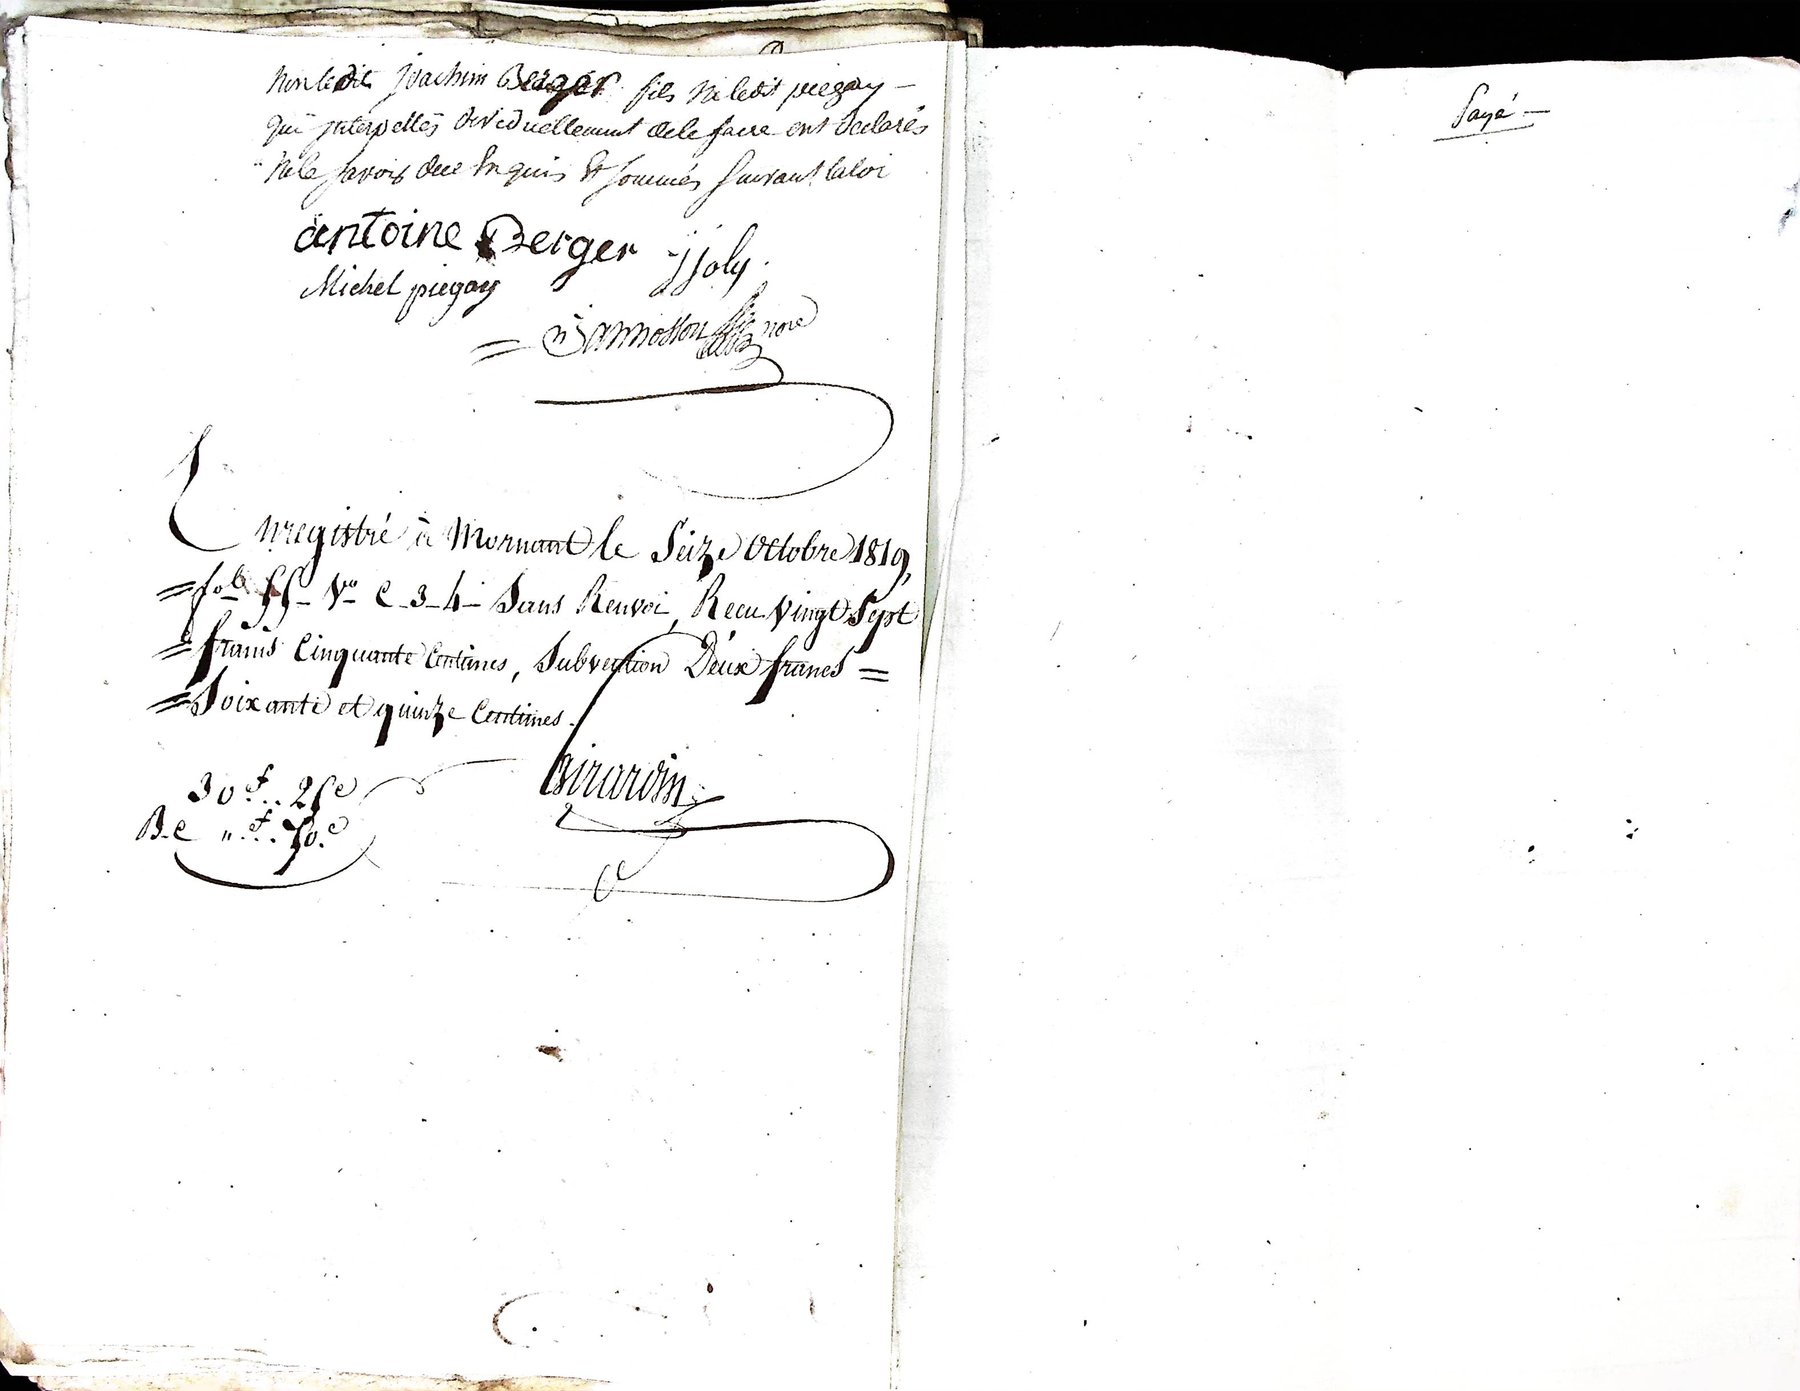 non ledit joachim Berger fils ni ledit piegay —
qui interpellés individuellement de le faire ont declarés
ne le savoir de ce Enquis & sommés suivant la loi
antoine Berger jjoly
Michel piegay
nore
Enregistré à Mornant le Seize Octobre 1819,
= fo 55 Vo C 3-4 Sans Renvoi, Recu Vingt Sept
= francs Cinquante Centimes, Subvention Deux francs =
= Soixante et quinze Centimes.
30f.. 25c
Girardin
B.C "f.. 50c
Payé —